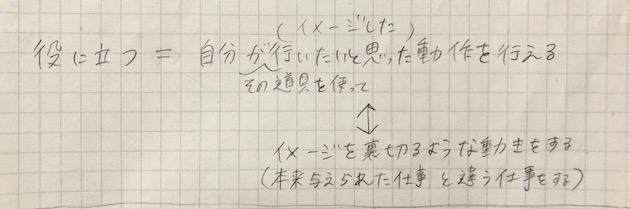 (イメージした)
役に立つ = 自分が行いたいと思った動作を行える
その道具を使って
↕
イメージを裏切るような動きをする
(本来与えられた仕事と違う仕事をする)